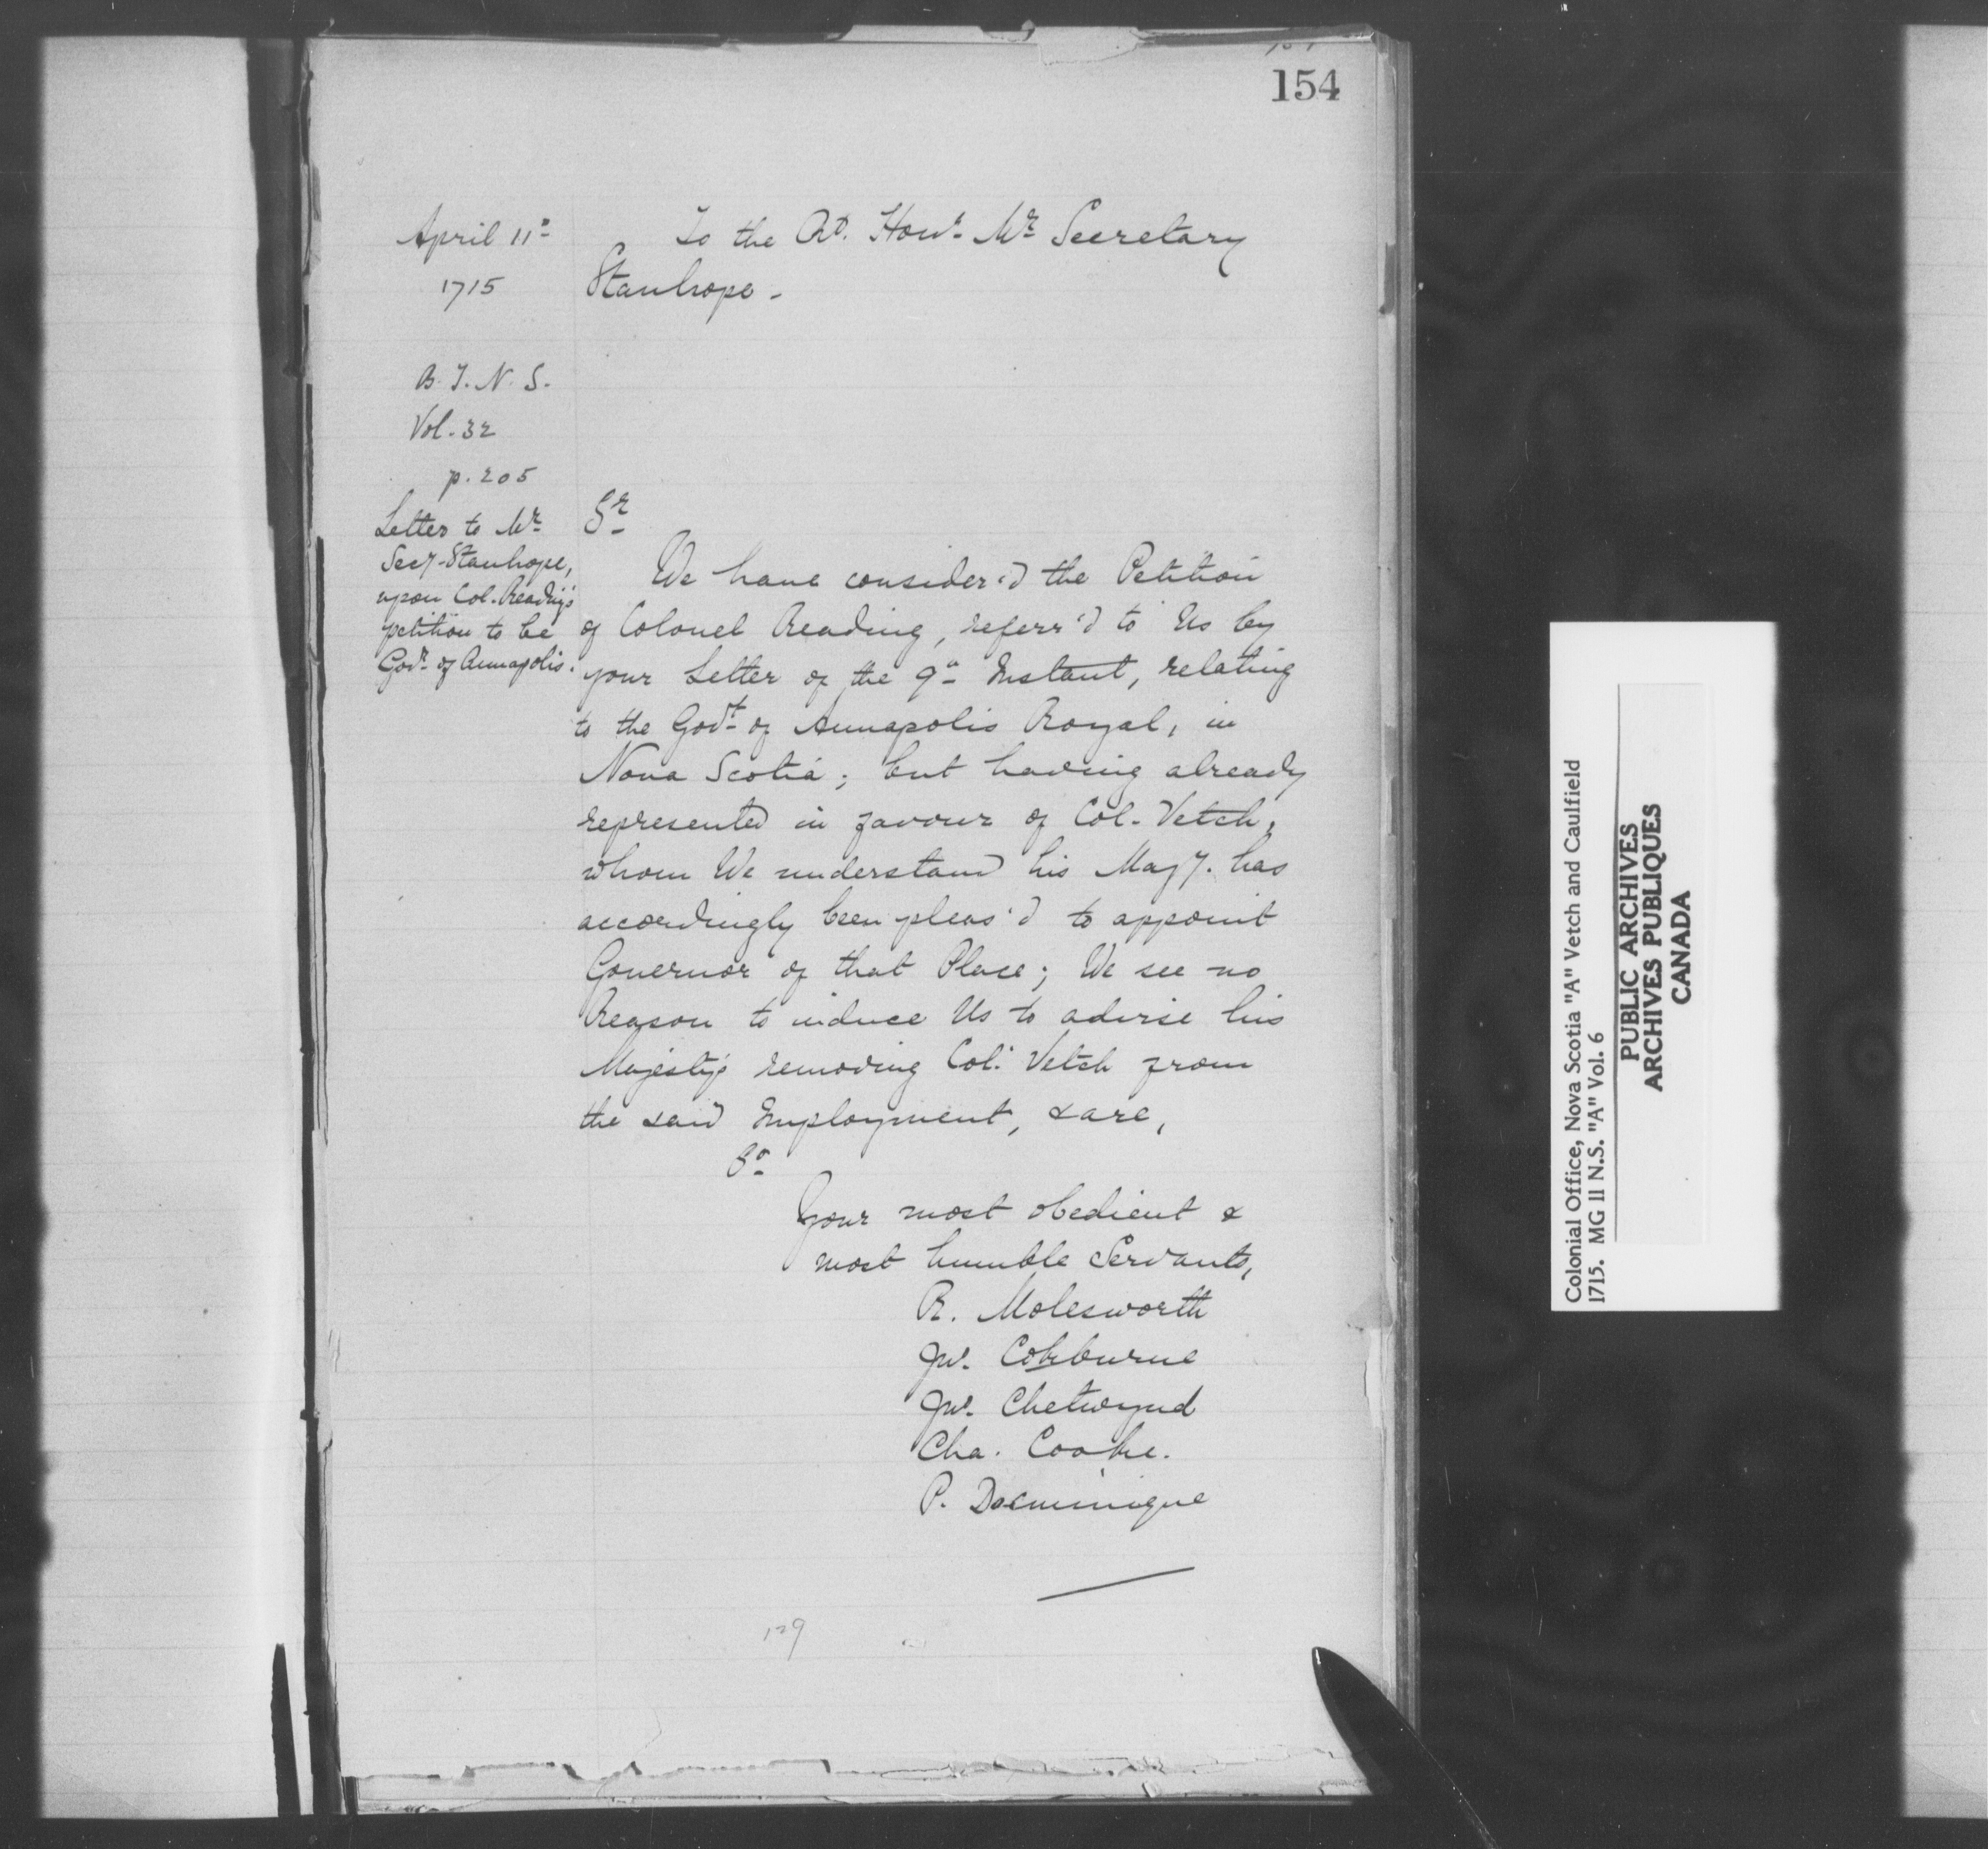 154
April 11th
1715
B.T.N.S.
Vol. 32
p. 205
Letter to Mr
Secy Stanhope,
upon Col. Reading's
petition to be
Govr of Annapolis.
To the Rt. Honl Mr Secretary
Stanhope.
Sr
We have consider'd the Petition
of Colonel Reading, referr'd to Us by
your Letter of the 9th Instant, relating
to the Govt of Annapolis Royal, in
Nova Scotia; but having already
represented in favour of Col. Vetch,
whom We understand his Majy. has
accordingly been pleas'd to appoint
Governor of that Place; We see no
Reason to induce Us to advise his
Majesty's removing Col. Vetch from
the said Employment, & are,
Sr
Your most obedient &
most humble Servants,
R. Molesworth
Jno. Cokburne
Jno. Chetwynd
Cha. Cooke.
P. Docminique
129
Colonial Office, Nova Scotia "A" Vetch and Caulfield
1715. MG 11 N.S. "A" Vol. 6
PUBLIC ARCHIVES
ARCHIVES PUBLIQUES
CANADA